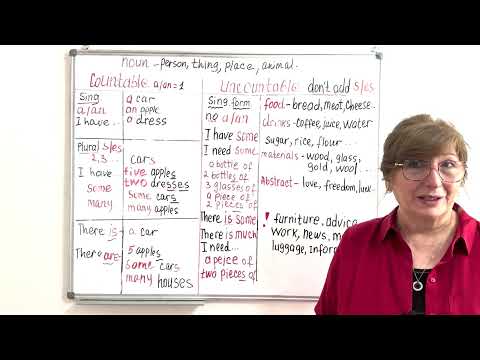 noun - person, thing, place, animal.
Countable a/an=1
Uncountable don't add s/es
Sing.
a/an
I have...
a car
an apple
a dress
Plural s/es
2,3...
I have
some
many
cars
five apples
two dresses
some cars
many apples
There is -
a car
There are -
5 apples
some cars
many houses
Sing. form
no a/an
I have some
I need some
a bottle of
2 bottles of
3 glasses of
a piece of
2 pieces of
There is some
There is much
I need...
a peice of
two pieces of
food - bread, meat, cheese..
drinks - coffee, juice, water
sugar, rice, flour...
materials - wood, glass,
gold, wool...
Abstract - love, freedom,
! furniture, advice
work, news,
luggage,